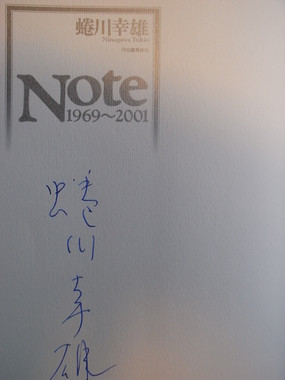 蜷川幸雄
Ninagawa Yukio
河出書房新社
Note
1969〜2001
蜷川幸雄